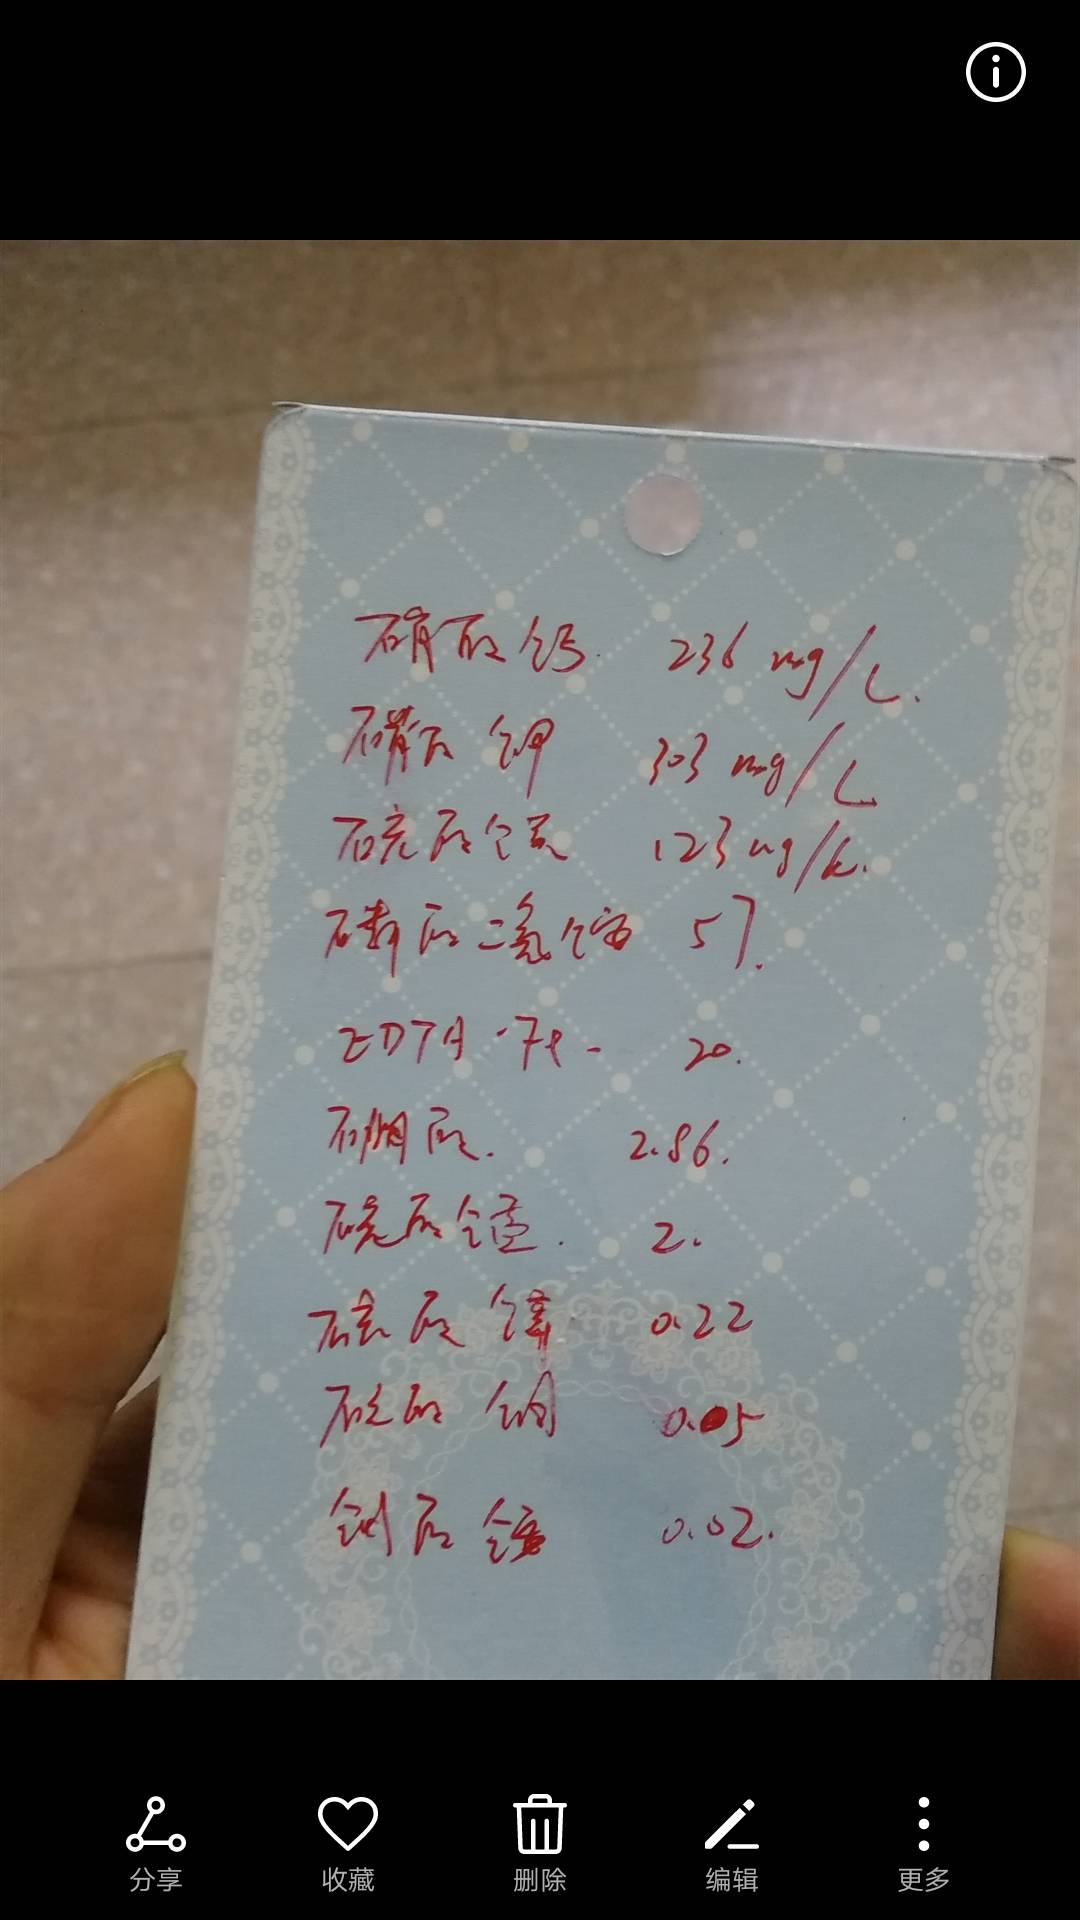 硝酸钙 236 mg/L.
硝酸钾 303 mg/L
硫酸镁 123 mg/L.
磷酸二氢铵 57.
EDTA-Fe- 20.
硼酸. 2.86.
硫酸锰. 2.
硫酸锌 0.22
硫酸铜 0.05
钼酸铵 0.02.
分享 收藏 删除 编辑 更多